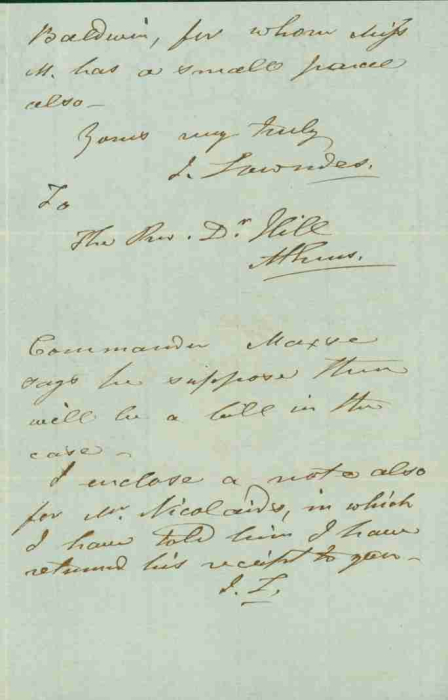 Baldwin, for whom Miss
M. has a small parcel
also -
Yours very truly
J. Lowndes.
To
The Rev. Dr. Hill
Athens.
Commander Maxse
says he suppose there
will be a bill in the
case -
I enclose a note also
for Mr. Nicolaides, in which
I have told him I have
returned his receipt to you -
J. L.